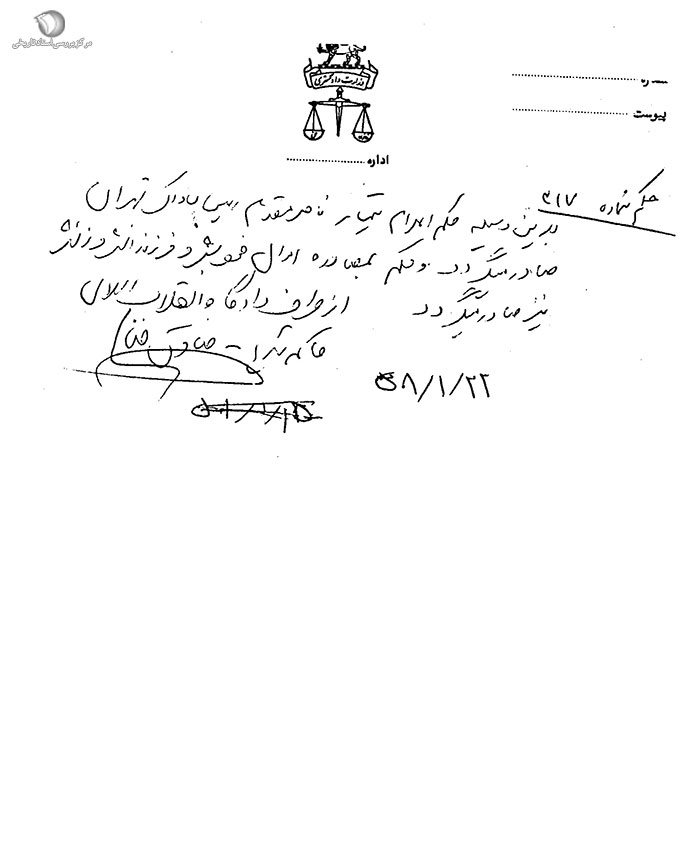 مرکز بررسی اسناد تاریخی
وزارت دادگستری
شماره
پیوست
اداره
حکم شماره ۳۱۷
بدین وسیله حکم اعدام تیمسار ناصر مقدم رییس ساواک تهران
صادر میگردد و حکم بمصادره اموال خویش و فرزندانش و زنش
نیز صادر میگردد از طرف دادگاه انقلاب اسلامی
حاکم شرع صادق
۵۸/۱/۲۲